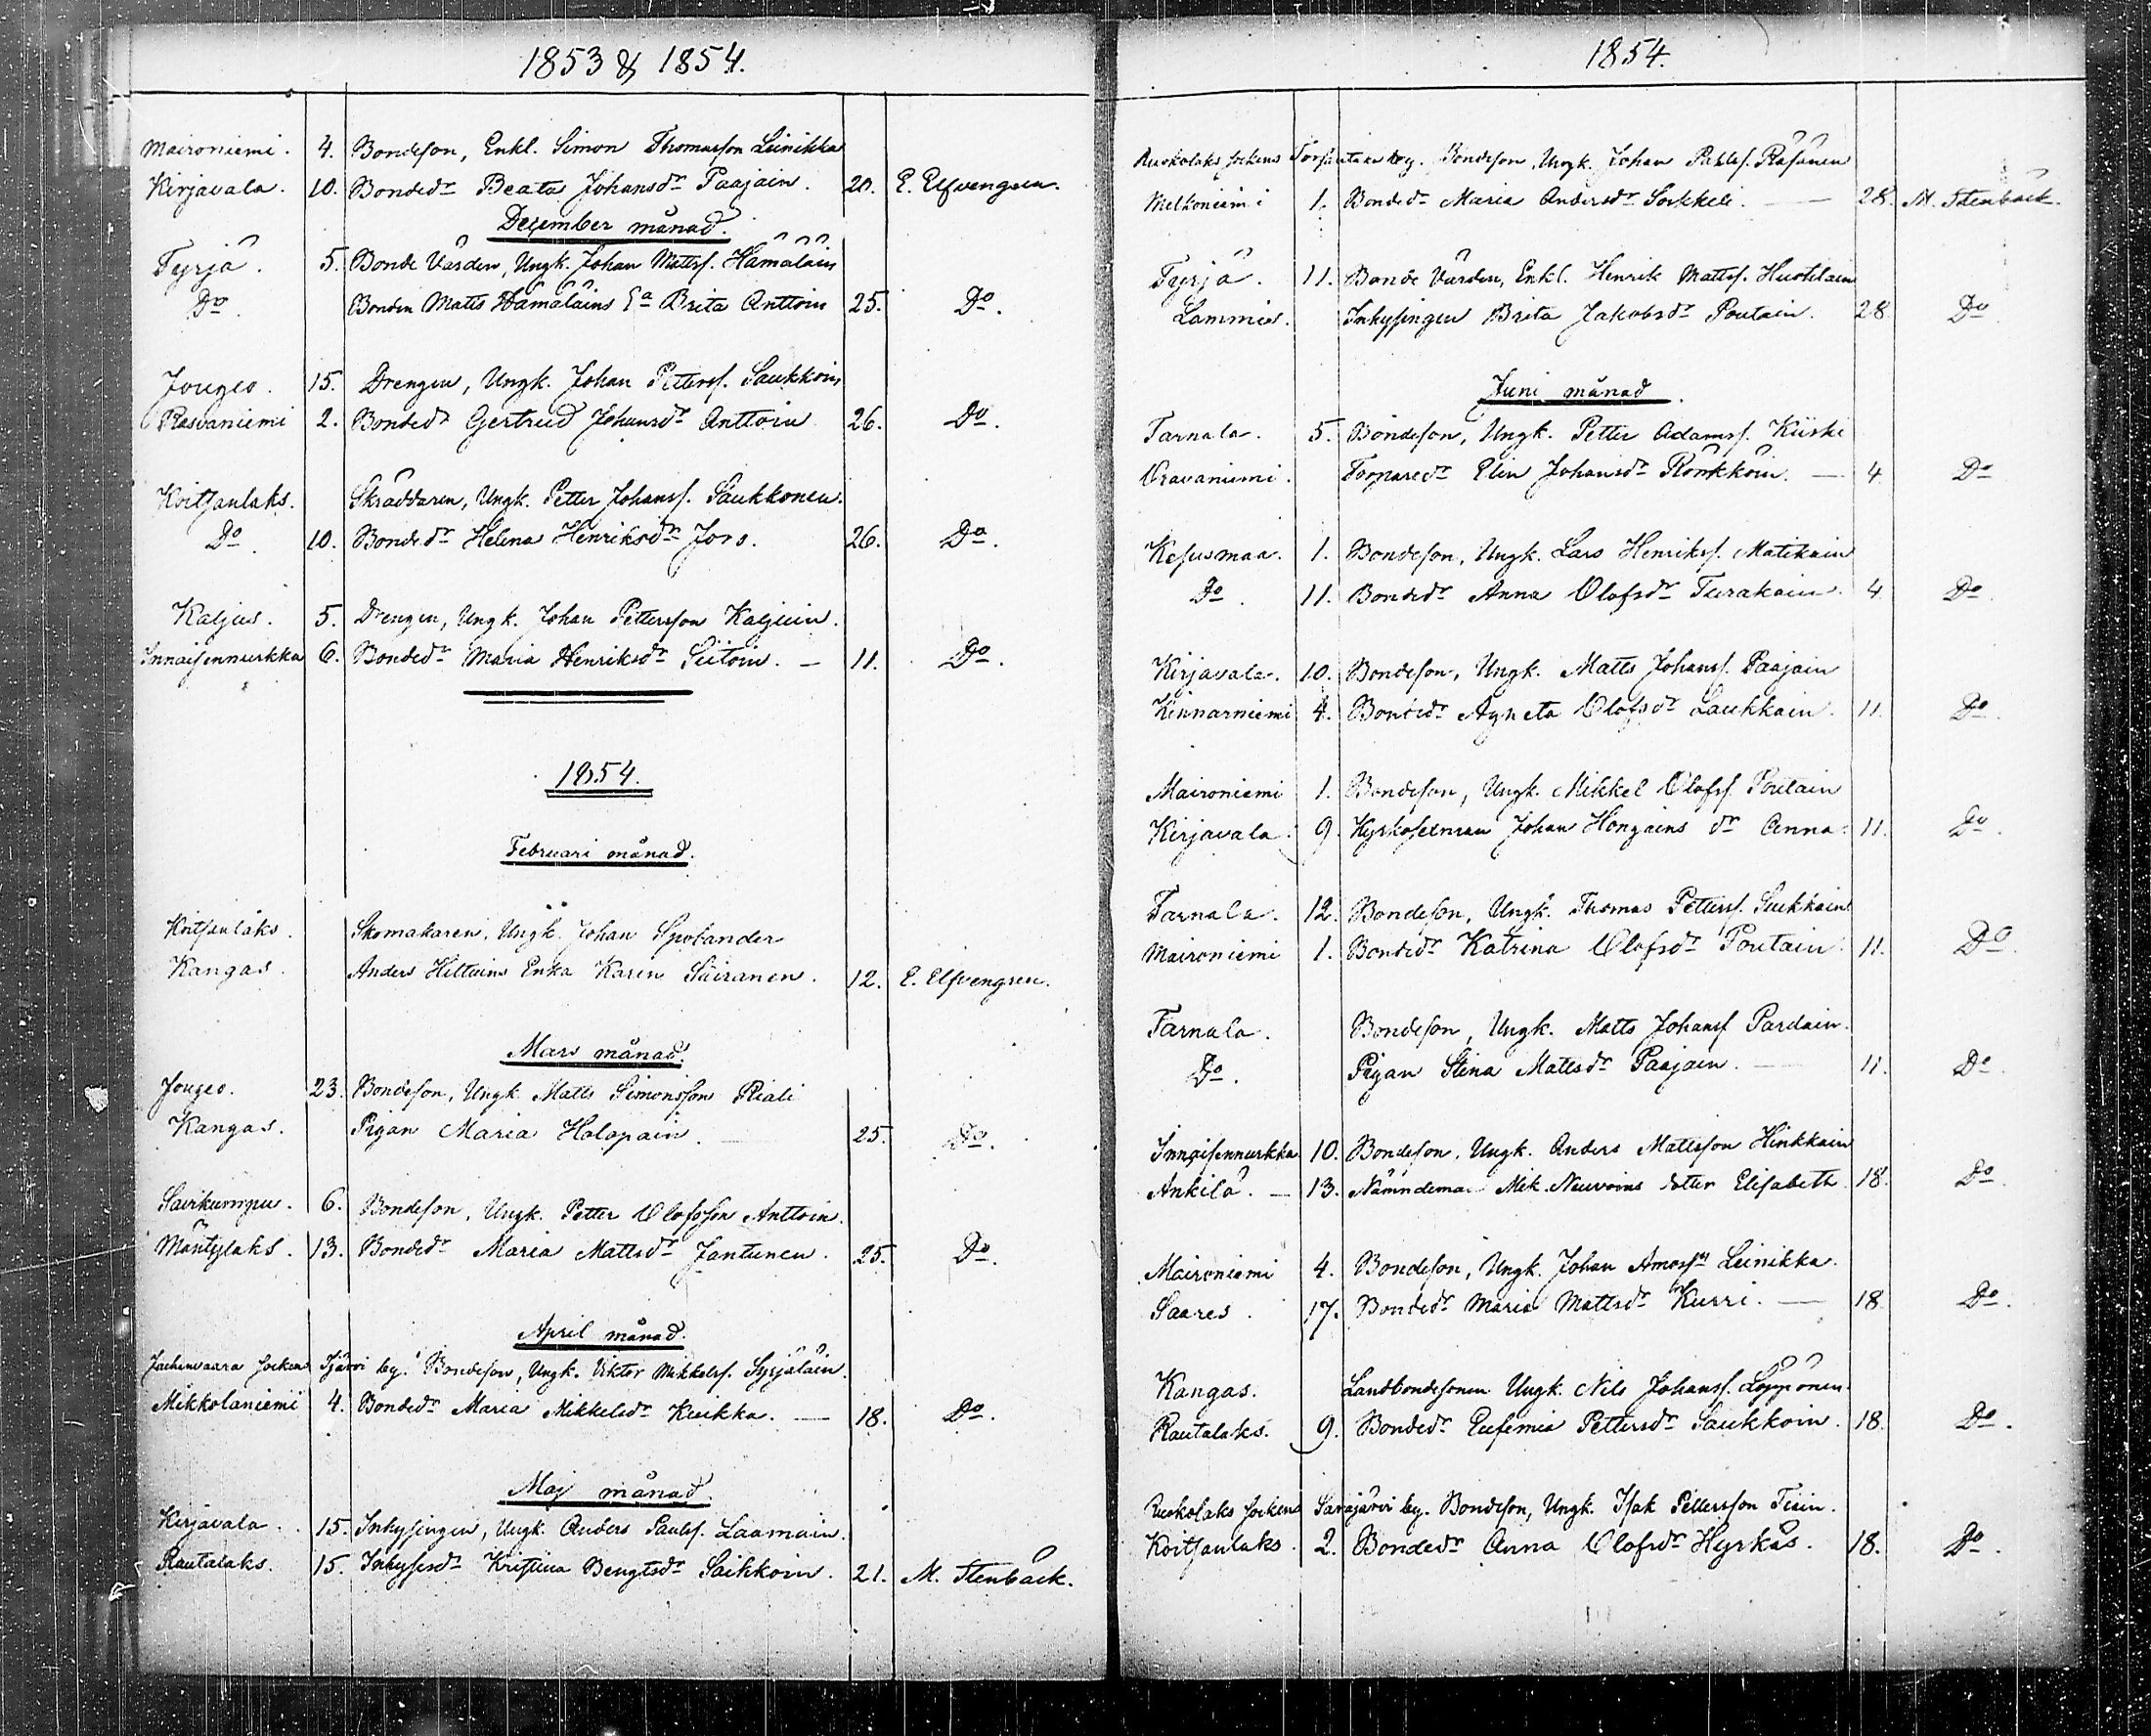 1853 & 1854.
Maironiemi. 4. Bondeson, Enkl. Simon Thomasson Leinikka
Kirjavala. 10. Bondedr Beata Johansdr Paajain. 20. E. Elfvengren.
December månad.
Tyrjä. 5. Bonde Värden, Ungk. Johan Mattsf. Hämäläin
Do Bonden Matts Hämäläins Ea Brita Anttoin 25. Do.
Jougio. 15. Drengen, Ungk. Johan Pettersf. Saukkoin
Rasvaniemi 2. Bondedr Gertrud Johansdr Anttoin 26. Do.
Koitsanlaks. Skräddaren, Ungk. Petter Johansf. Saukkonen.
Do. 10. Bondedr Helena Henriksdr Joro. 26. Do.
Kaljus. 5. Drengen, Ungk. Johan Pettersson Kaljuin.
Innaisennurkka 6. Bondedr Maria Henriksdr Siitoin. — 11. Do.
1854.
Februari månad.
Koitsanlaks. Skomakaren, Ungk. Johan Spolander
Kangas. Anders Hiltuins Enka Karin Säiranen. 12. E. Elfvengren.
Mars månad.
Jougio. 23. Bondeson, Ungk. Matts Simonsson Riali
Kangas. Pigan Maria Holopain. 25. Do.
Sairkumpu. 6. Bondeson, Ungk. Petter Olofsson Anttoin.
Mäntylaks. 13. Bondedr Maria Mattsdr Jantunen. 25. Do.
April månad.
Jaakimvaara socken Ijärvi by. Bondeson, Ungk. Viktor Mikkelsf. Syrjäläin.
Mikkolaniemi 4. Bondedr Maria Mikkelsdr Kuikka. — 18. Do.
Maj månad.
Kirjavala. 15. Inhysingen, Ungk. Anders Paulsf. Laamain.
Rautalaks. 15. Inhysesdr Kristina Bengtsdr Saikkoin. 21. M. Stenbäck.
1854.
Ruokolaks sockens by. Bondeson, Ungk. Johan Räsänen
Melkoniemi 1. Bondedr Maria Andersdr Sokkeli. — 28. M. Stenbäck.
Tyrjä. 11. Bonde Värden, Enkl. Henrik Mattsf. Huohilain
Lammin. Inhysingen Brita Jakobsdr Poutain. 28 Do
Juni månad.
Tarnala. 5. Bondeson, Ungk. Petter Adamsf. Kiiski
Oravaniemi. Torparedr Elin Johansdr Rönkköin. — 4 Do
Kesusmaa. 1. Bondeson, Ungk. Lars Henriksf. Matikain
Do. 11. Bondedr Anna Olofsdr Turakain. 4 Do.
Kirjavala. 10. Bondeson, Ungk. Matts Johansf. Paajain
Kinnarniemi 4. Bondedr Agneta Olofsdr Laukkain. 11. Do.
Maironiemi 1. Bondeson, Ungk. Mikkel Olofsf. Poutain
Kirjavala. 9. Kyrkosexman Johan Hongains dr Anna. 11. Do.
Tarnala. 12. Bondeson, Ungk. Thomas Pettersf. Suikkain
Maironiemi 1. Bondedr Katrina Olofsdr Poutain. 11. Do.
Tarnala. Bondeson, Ungk. Matts Johansf Pardain.
Do. Pigan Stina Mattsdr Paajain. — 11. Do.
Innaisennurkka 10. Bondeson, Ungk. Anders Mattsson Hinkkain
Ankila. — 13. Nämndeman Mik. Neuvoins dotter Elisabeth 18. Do.
Maironiemi 4. Bondeson, Ungk. Johan Amossn Leinikka.
Saares. 17. Bondedr Maria Mattsdr Kurri. — 18 Do.
Kangas. Landbondesonen Ungk. Nils Johansf. Löppönen.
Rautalaks. 9. Bondedr Eufemia Pettersdr Saukkoin. 18. Do.
Ruokolaks sockens Sarajärvi by. Bondeson, Ungk. Isak Pettersson Tiain.
Koitsanlaks. 2. Bondedr Anna Olofsdr Hyrkäs. 18. Do.